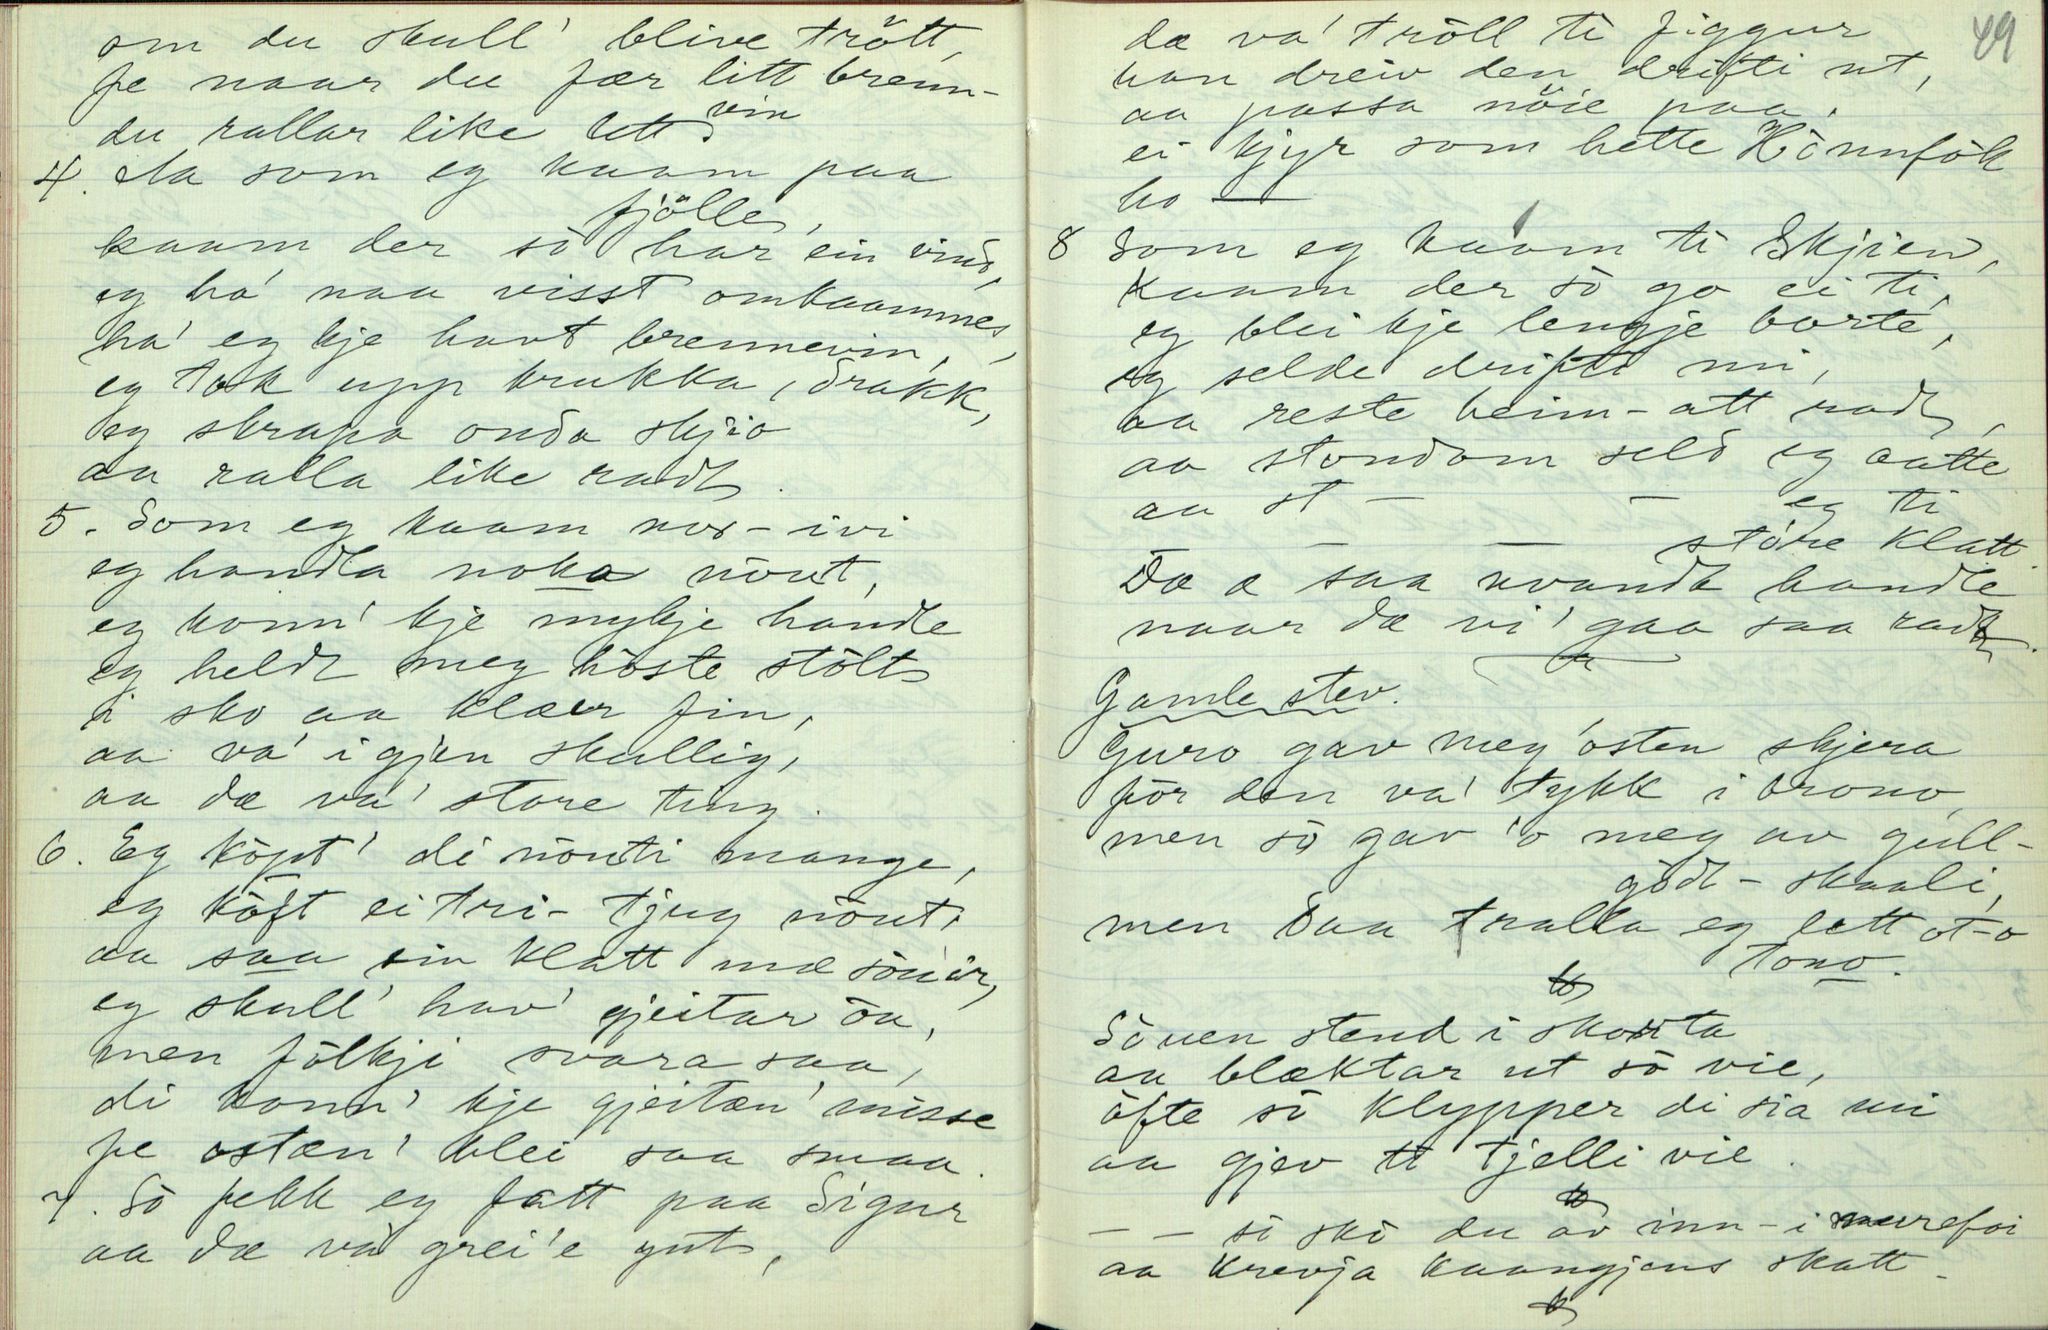 om du skull' blive trött,
fe naar du fær litt brenn-
vin
du rallar like lett
4. Aa som eg kaam paa
fjölle,
kaam der sò har ein vind,
eg há naa visst omkaammes,
há' eg kje havt brennevin,
eg tok upp krukka, drakk,
eg skrapa onda skjio
aa ralla like radt.
5. Som eg kaam nor-ivi
eg handla noka nöut,
eg konn' kje mykje handle
eg heldt meg höste stölt
i sko aa klæer fin,
aa va' i gjen skullig,
aa dæ va' store ting.
6. Eg köpt' di nöuti mange,
eg köft ei tri-tjug nöut,
aa saa ein klatt mæ söuir,
eg skull' hav' gjeitar öu,
men fölkji svara saa,
di konn' kje gjeitæn' misse
fe ostæn' blei saa smaa.
7. Sò fekk eg fatt paa Sigur
aa dæ va grei'e gut,
49
dæ va' tröll ti figgur
han dreiv den drifti ut,
aa passa nöie paa,
ei kjyr som hette Hönnfök
ho —
8 Som eg kaam ti Skjien,
kaam der sò go ei ti,
eg blei kje lengje borte,
eg selde drifti mi,
aa reste heim-att radt,
aa stondom seld eg aatte
aa st — — eg ti
— — störe klatt.
Dæ æ saa uvandt handle
naar dæ vi' gaa saa radt.
Gamle stev.
Guro gav meg osten skjera
för den va' tykk i brono,
men sò gav 'o meg av gull-
gödt-skaali,
men daa tralla eg lett ot-o
tono.
Söuen stend i skorta
aa blæktar ut sò vie,
öfte sò klypper di sia mi
aa gjev ti tjelli vie.
— — sò skò du av inn-i murefoi
aa krevja kaangjens skatt –